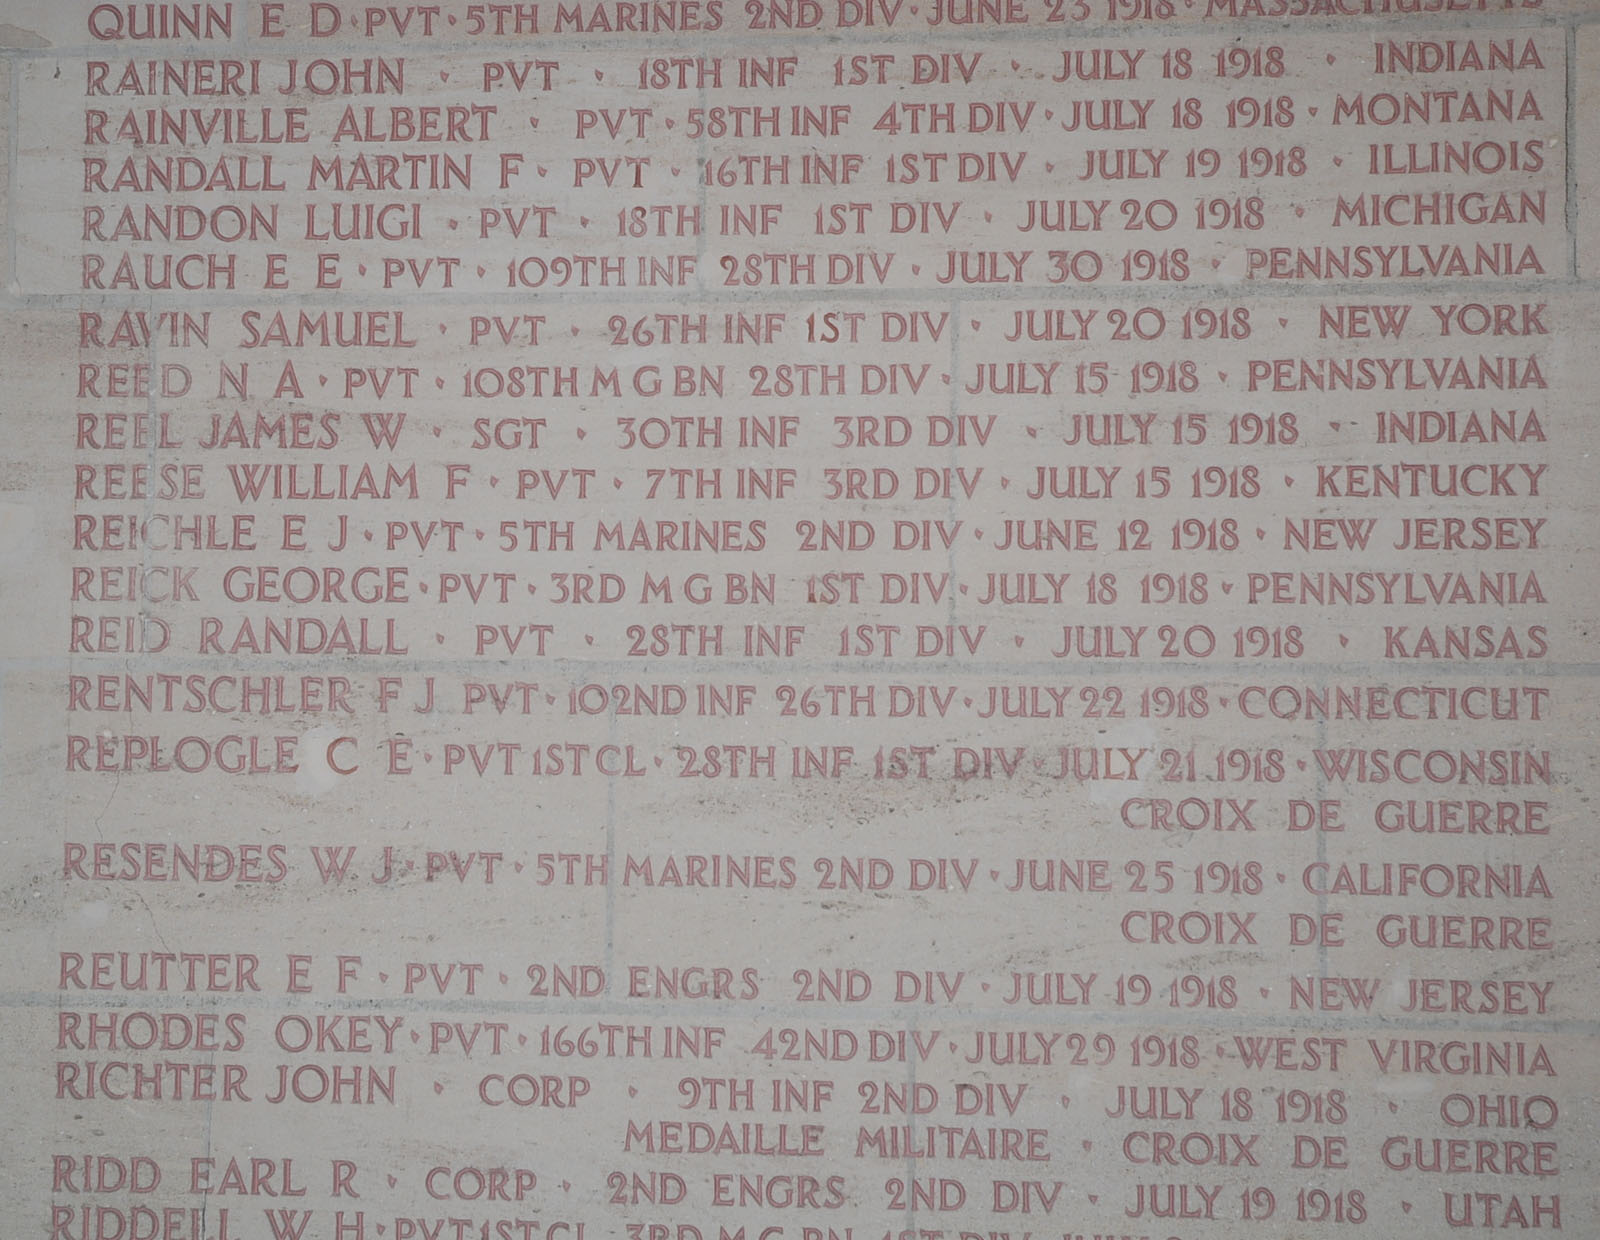 QUINN E D · PVT · 5TH MARINES 2ND DIV · JUNE 23 1918 · MASSACHUSETTS
RAINERI JOHN · PVT · 18TH INF 1ST DIV · JULY 18 1918 · INDIANA
RAINVILLE ALBERT · PVT · 58TH INF 4TH DIV · JULY 18 1918 · MONTANA
RANDALL MARTIN F · PVT · 16TH INF 1ST DIV · JULY 19 1918 · ILLINOIS
RANDON LUIGI · PVT · 18TH INF 1ST DIV · JULY 20 1918 · MICHIGAN
RAUCH E E · PVT · 109TH INF 28TH DIV · JULY 30 1918 · PENNSYLVANIA
RAVIN SAMUEL · PVT · 26TH INF 1ST DIV · JULY 20 1918 · NEW YORK
REED N A · PVT · 108TH M G BN 28TH DIV · JULY 15 1918 · PENNSYLVANIA
REEL JAMES W · SGT · 30TH INF 3RD DIV · JULY 15 1918 · INDIANA
REESE WILLIAM F · PVT · 7TH INF 3RD DIV · JULY 15 1918 · KENTUCKY
REICHLE E J · PVT · 5TH MARINES 2ND DIV · JUNE 12 1918 · NEW JERSEY
REICK GEORGE · PVT · 3RD M G BN 1ST DIV · JULY 18 1918 · PENNSYLVANIA
REID RANDALL · PVT · 28TH INF 1ST DIV · JULY 20 1918 · KANSAS
RENTSCHLER F J PVT · 102ND INF 26TH DIV · JULY 22 1918 · CONNECTICUT
REPLOGLE C E · PVT 1ST CL · 28TH INF 1ST DIV · JULY 21 1918 · WISCONSIN
CROIX DE GUERRE
RESENDES W J · PVT · 5TH MARINES 2ND DIV · JUNE 25 1918 · CALIFORNIA
CROIX DE GUERRE
REUTTER E F · PVT · 2ND ENGRS 2ND DIV · JULY 19 1918 · NEW JERSEY
RHODES OKEY · PVT · 166TH INF 42ND DIV · JULY 29 1918 · WEST VIRGINIA
RICHTER JOHN · CORP · 9TH INF 2ND DIV · JULY 18 1918 · OHIO
MEDAILLE MILITAIRE · CROIX DE GUERRE
RIDD EARL R · CORP · 2ND ENGRS 2ND DIV · JULY 19 1918 · UTAH
RIDDELL W H · PVT 1ST CL · 3RD M G BN 1ST DIV ·